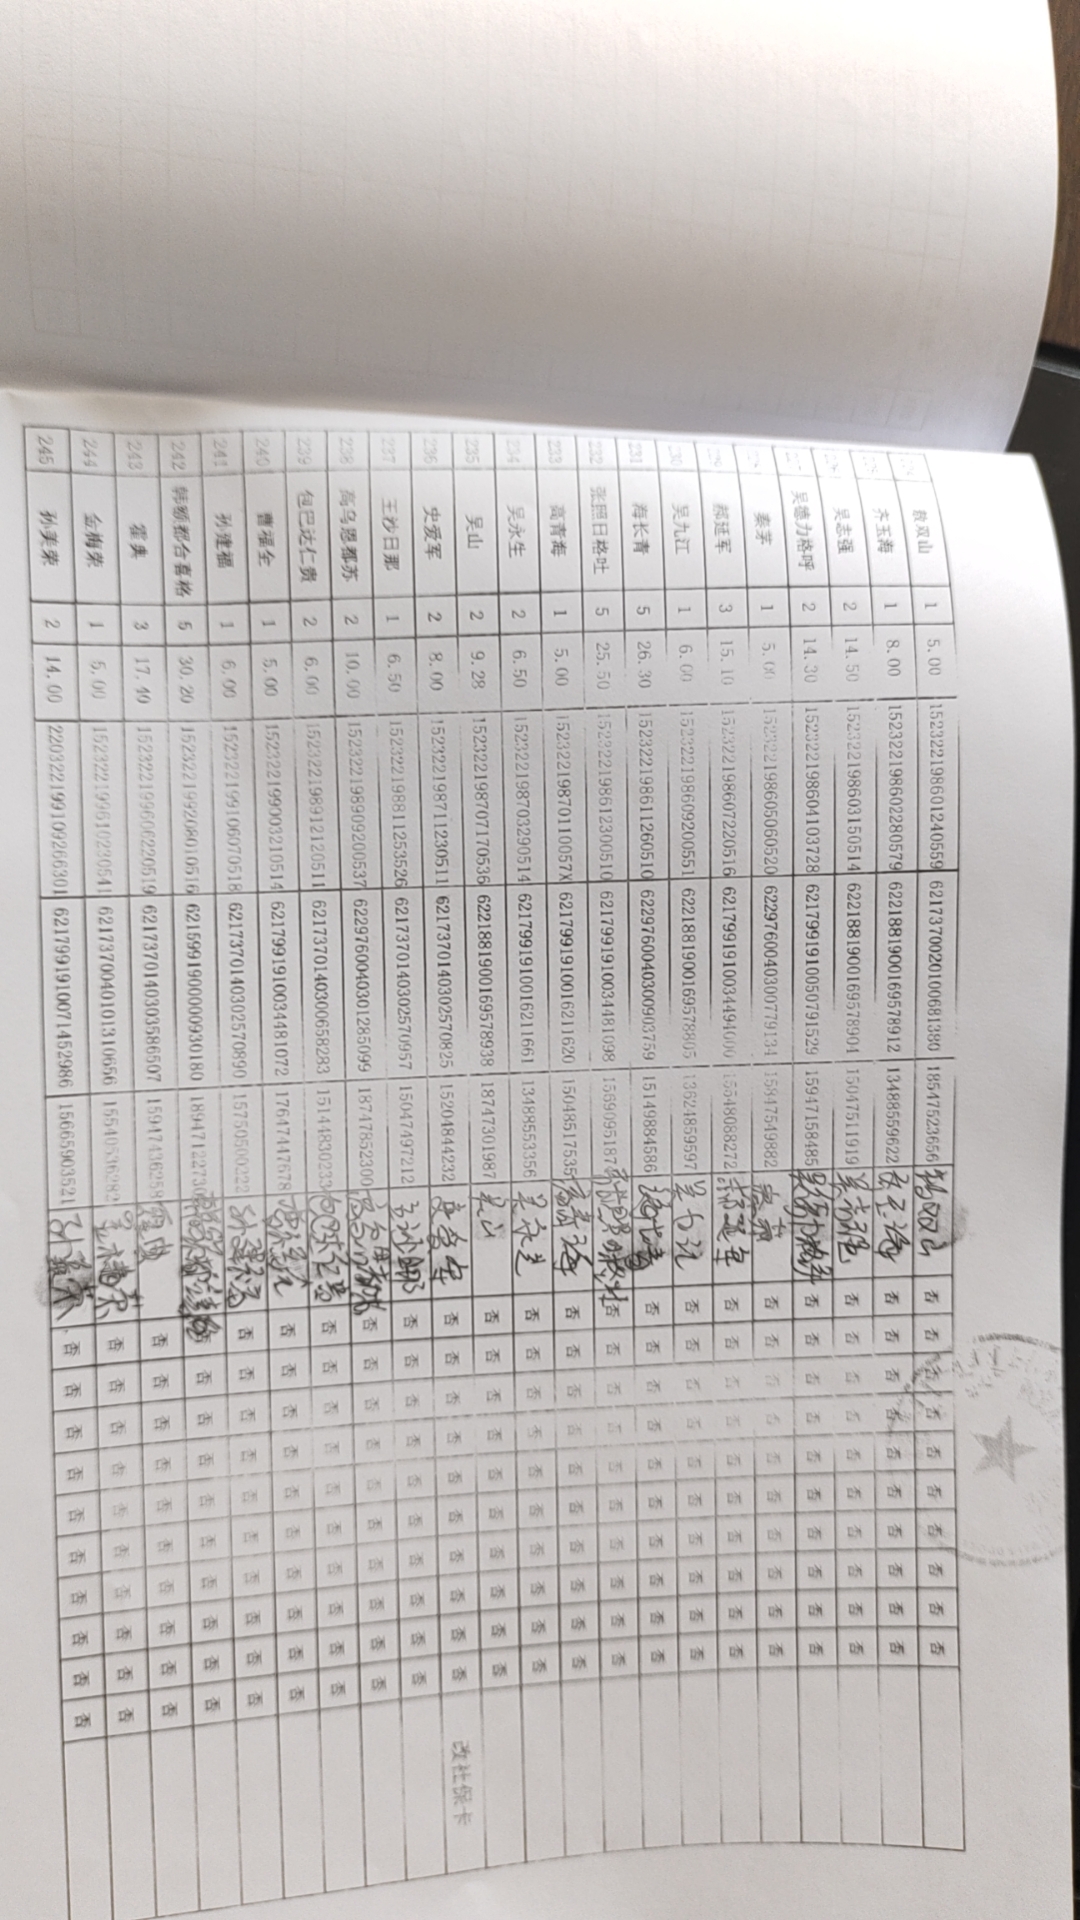 224 敖双山 1 5.00 152322198601240559 6217370020100681380 18547523656 否 否 否 否 否 否 否 否 否 否
225 齐玉海 1 8.00 152322198602280579 6221881900169578912 13488559622 否 否 否 否 否 否 否 否 否 否
226 吴志强 2 14.50 152322198603150514 6221881900169578904 15047511919 吴志强 否 否 否 否 否 否 否 否 否 否
227 吴德力格呼 2 14.30 152322198604103728 6217991910050791529 15947158485 否 否 否 否 否 否 否 否 否 否
228 秦芽 1 5.00 152322198605060520 6229760040300779134 15847549882 否 否 否 否 否 否 否 否 否 否
229 郝延军 3 15.10 152322198607220516 6217991910034494000 15548088272 否 否 否 否 否 否 否 否 否 否
230 吴九江 1 6.00 152322198609200551 6221881900169578805 13624859597 吴九江 否 否 否 否 否 否 否 否 否 否
231 海长青 5 26.30 152322198611260510 6229760040300903759 15149884586 否 否 否 否 否 否 否 否 否 否
232 张照日格吐 5 25.50 152322198612300510 6217991910034481098 1569095187 否 否 否 否 否 否 否 否 否 否
233 高青海 1 5.00 15232219870110057X 6217991910016211620 15048517535 高青海 否 否 否 否 否 否 否 否 否 否
234 吴永生 2 6.50 152322198703290514 6217991910016211661 13488553356 吴永生 否 否 否 否 否 否 否 否 否 否
235 吴山 2 9.28 152322198707170536 6221881900169578938 18747301987 吴山 否 否 否 否 否 否 否 否 否 否
236 史爱军 2 8.00 152322198711230511 6217370140302570825 15204844232 否 否 否 否 否 否 否 否 否 否 改社保卡
237 王沙日那 1 6.50 152322198811253526 6217370140302570957 15047497212 否 否 否 否 否 否 否 否 否 否
238 高乌恩都苏 2 10.00 152322198909200537 6229760040301285099 18747852300 否 否 否 否 否 否 否 否 否 否
239 包巴达仁贵 2 6.00 152322198912120511 6217370140300658283 1514483023 否 否 否 否 否 否 否 否 否 否
240 曹福全 1 5.00 152322199003210514 6217991910034481072 17647447678 否 否 否 否 否 否 否 否 否 否
241 孙建福 1 6.00 152322199106070518 6217370140302570890 15750506222 孙建福 否 否 否 否 否 否 否 否 否 否
242 韩额都合喜格 5 30.20 152322199208010516 6215991900000930180 1894712273 否 否 否 否 否 否 否 否 否 否
243 霍典 3 17.40 152322199606220519 6217370140303586507 15947436258 霍典 否 否 否 否 否 否 否 否 否 否
244 金梅荣 1 5.00 152322199610230541 6217370040101310656 15540536282 否 否 否 否 否 否 否 否 否 否
245 孙美荣 2 14.00 220322199109266301 6217991910071452986 15665903521 孙美荣 否 否 否 否 否 否 否 否 否 否